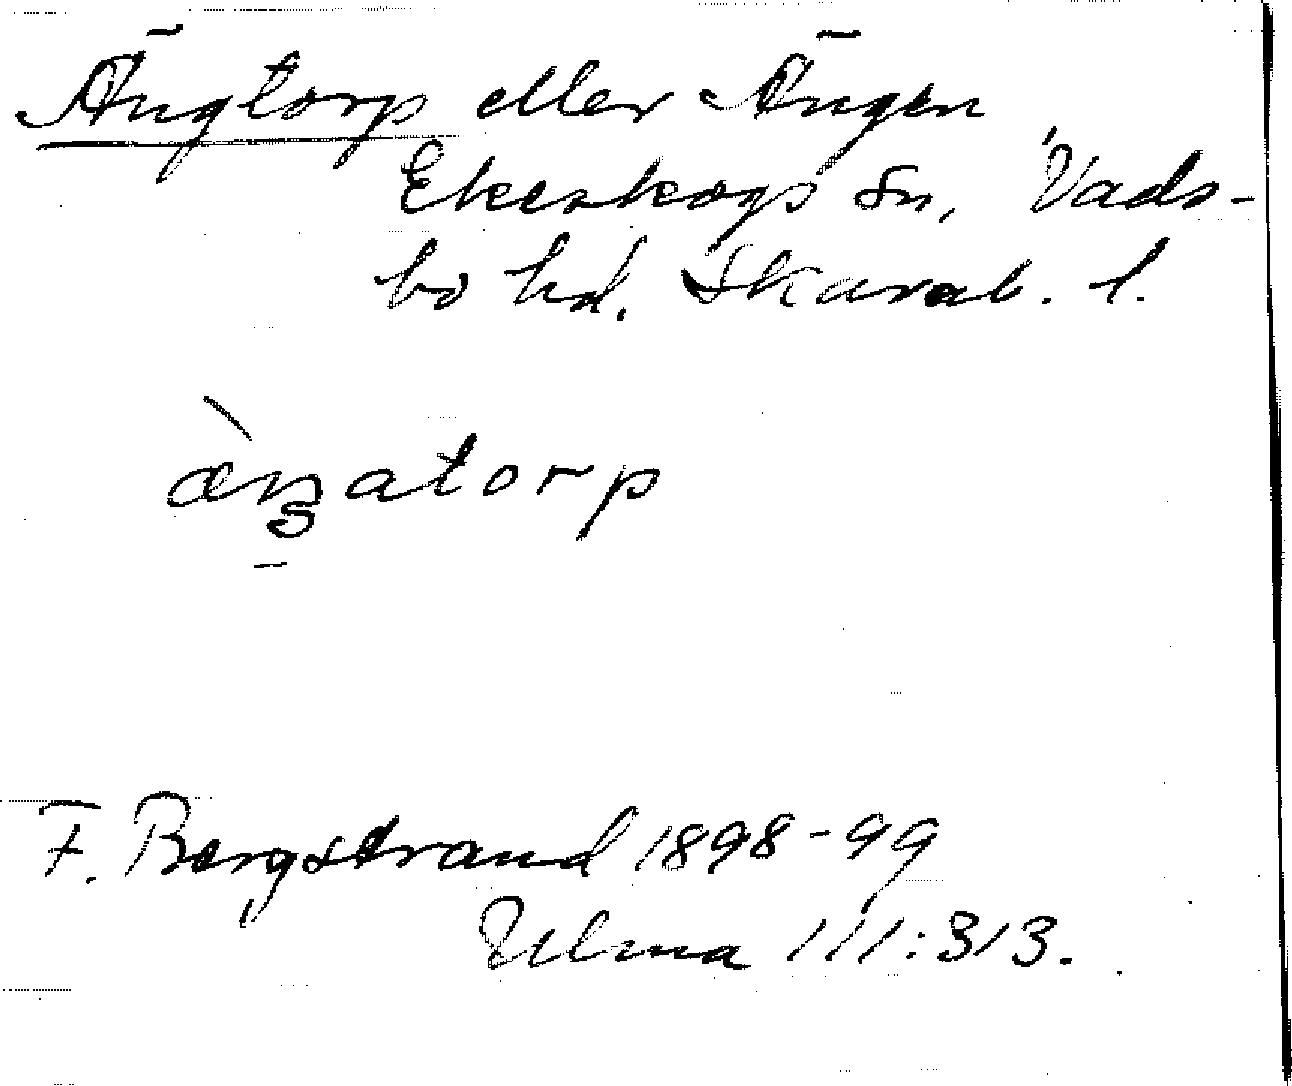 Ängtorp eller Ängen
Ekeskogs Sn, Vads-
bo hd. Skarab. l.
æ̀ŋatorp
F. Bergstrand 1898-99
Ulma 111:313.